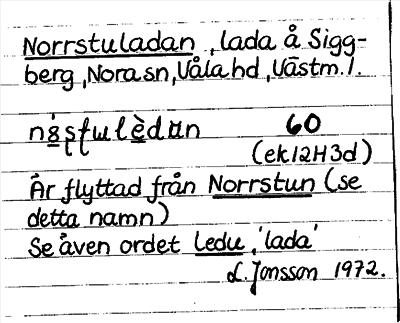 Norrstuladan, lada å Sigg-
berg, Nora sn, Våla hd, Västm. l.
60
(ek 12H3d)
Är flyttad från Norrstun (se
detta namn)
Se även ordet ledu, 'lada'
L. Jonsson 1972.